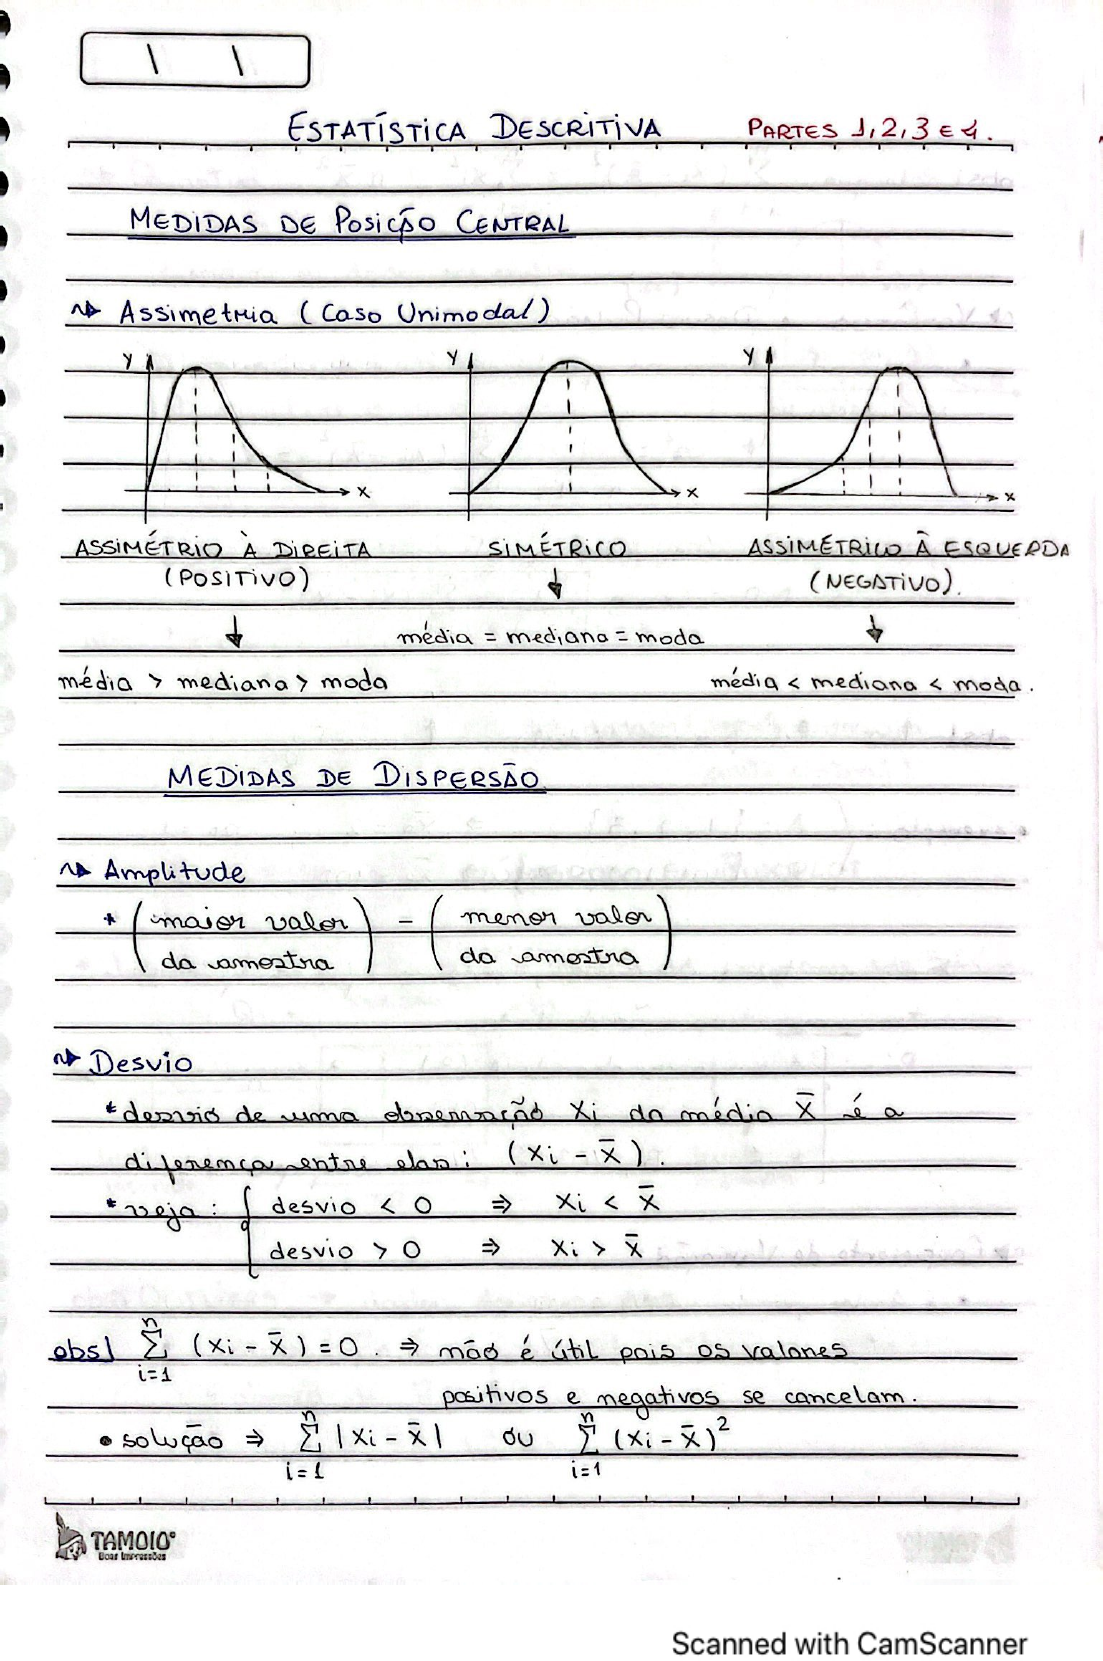 ESTATÍSTICA DESCRITIVA PARTES 1, 2, 3 E 4.
MEDIDAS DE POSIÇÃO CENTRAL
Assimetria (Caso Unimodal)
Y Y Y
x x x
ASSIMÉTRIO À DIREITA SIMÉTRICO ASSIMÉTRICO À ESQUERDA
(POSITIVO) ↓ (NEGATIVO).
↓ média = mediana = moda ↓
média > mediana > moda média < mediana < moda.
MEDIDAS DE DISPERSÃO
Amplitude
* (maior valor da amostra) - (menor valor da amostra)
Desvio
* desvio de uma observação Xi da média X̄ é a
diferença entre elas: (Xi - X̄).
* veja: { desvio < 0 ⇒ Xi < X̄
desvio > 0 ⇒ Xi > X̄
obs| n∑i=1 (Xi - X̄) = 0. ⇒ não é útil pois os valores
positivos e negativos se cancelam.
• solução ⇒ n∑i=1 |Xi - X̄| ou n∑i=1 (Xi - X̄)²
TAMOIO®
Boas Impressões
Scanned with CamScanner